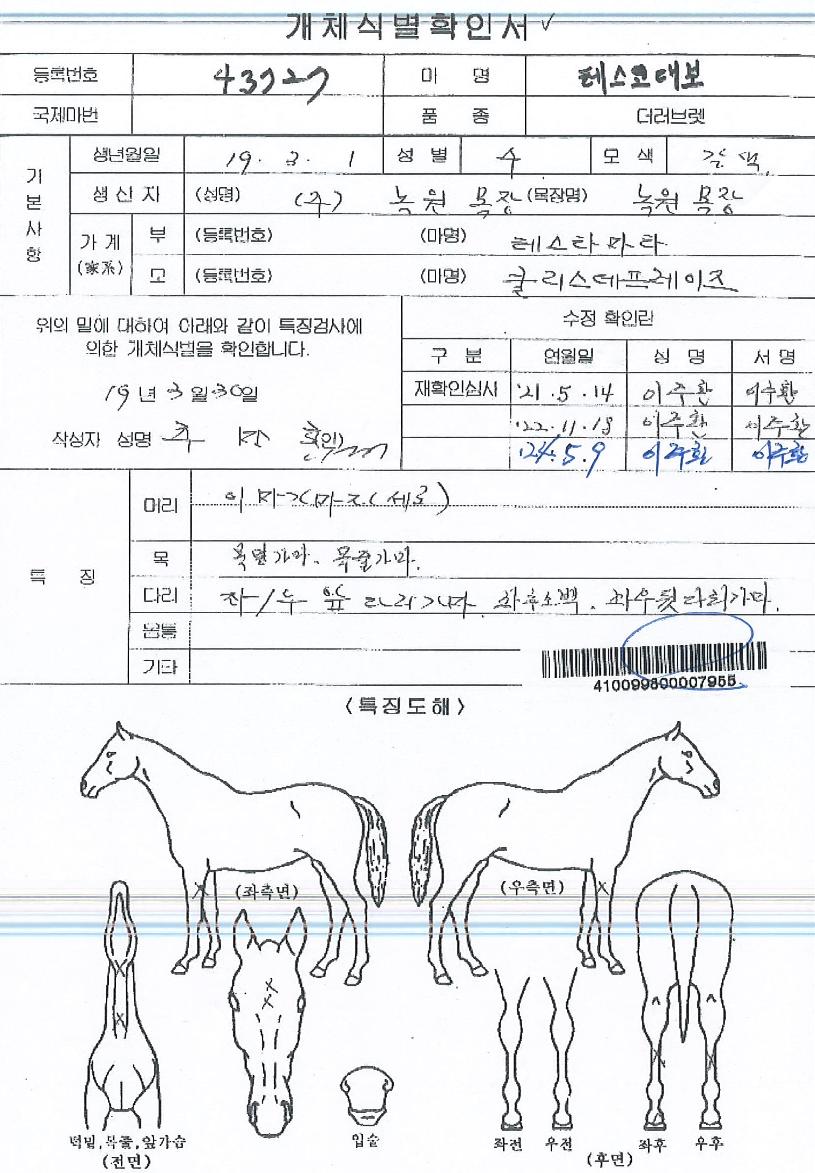 개체식별확인서 ✓
등록번호 43727 마 명 테스코대보
국제마번 품 종 더러브렛
기본사항
생년월일 19. 3. 1 성 별 수 모 색 갈색
생 산 자 (성명) (주) 녹원 목장 (목장명) 녹원 목장
가 계 (家系) 부 (등록번호) (마명) 테스타마타
모 (등록번호) (마명) 클리스데프레이즈
위의 말에 대하여 아래와 같이 특징검사에
의한 개체식별을 확인합니다.
19년 3월 30일
작성자 성명 (인)
수정 확인란
구 분 연월일 성 명 서 명
재확인심사 '21. 5. 14 이주환 이주환
'22. 11. 18 이주환 이주환
'24. 5. 9 이주환 이주환
특 징
머리 이마가마2(세로)
목 목멱가마. 목줄가마.
다리 좌/우 앞다리가마. 좌후소백. 좌우뒷다리가마.
몸통
기타
410099800007955
<특징도해>
(좌측면) (우측면)
턱밑,목줄,앞가슴
(전면)
입술
좌전 우전 좌후 우후
(후면)